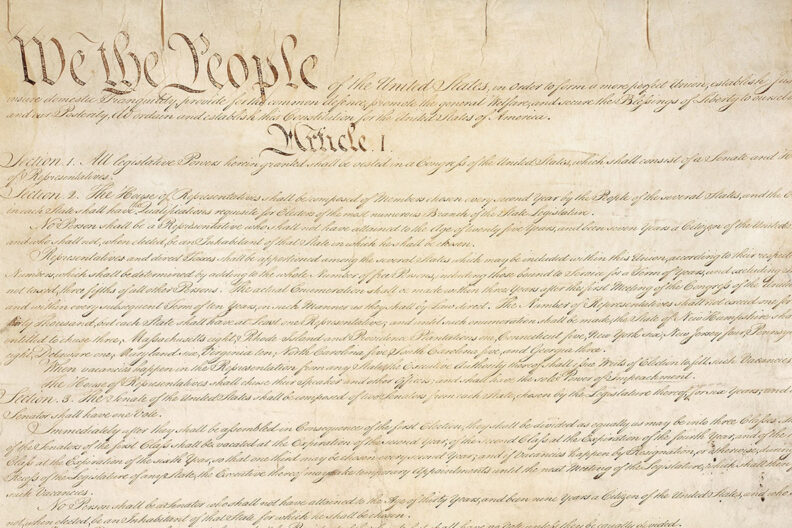 We the People of the United States, in Order to form a more perfect Union, establish Jus
insure domestic Tranquility, provide for the common defence, promote the general Welfare, and secure the Blessings of Liberty to oursel
and our Posterity, do ordain and establish this Constitution for the United States of America.
Article. I.
Section. 1. All legislative Powers herein granted shall be vested in a Congress of the United States, which shall consist of a Senate and
of Representatives.
Section. 2. The House of Representatives shall be composed of Members chosen every second Year by the People of the several States, and the
in each State shall have the Qualifications requisite for Electors of the most numerous Branch of the State Legislature.
No Person shall be a Representative who shall not have attained to the Age of twenty five Years, and been seven Years a Citizen of the United
and who shall not, when elected, be an Inhabitant of that State in which he shall be chosen.
Representatives and direct Taxes shall be apportioned among the several States which may be included within this Union, according to their respect
Numbers, which shall be determined by adding to the whole Number of free Persons, including those bound to Service for a Term of Years, and excluding
not taxed, three fifths of all other Persons. The actual Enumeration shall be made within three Years after the first Meeting of the Congress of the
and within every subsequent Term of ten Years, in such Manner as they shall by Law direct. The Number of Representatives shall not exceed one for
thirty Thousand, but each State shall have at Least one Representative; and until such enumeration shall be made, the State of New Hampshire shall
entitled to chuse three, Massachusetts eight, Rhode-Island and Providence Plantations one, Connecticut five, New-York six, New Jersey four, Pennsy
eight, Delaware one, Maryland six, Virginia ten, North Carolina five, South Carolina five, and Georgia three.
When vacancies happen in the Representation from any State, the Executive Authority thereof shall issue Writs of Election to fill such Vacancies
The House of Representatives shall chuse their Speaker and other Officers; and shall have the sole Power of Impeachment.
Section. 3. The Senate of the United States shall be composed of two Senators from each State, chosen by the Legislature thereof, for six Years; and
Senator shall have one Vote.
Immediately after they shall be assembled in Consequence of the first Election, they shall be divided as equally as may be into three Classes.
of the Senators of the first Class shall be vacated at the Expiration of the second Year, of the second Class at the Expiration of the fourth Year, and of the
Class at the Expiration of the sixth Year, so that one third may be chosen every second Year; and if Vacancies happen by Resignation, or otherwise, during
Recess of the Legislature of any State, the Executive thereof may make temporary Appointments until the next Meeting of the Legislature, which shall then
such Vacancies.
No Person shall be a Senator who shall not have attained to the Age of thirty Years, and been nine Years a Citizen of the United States, and who
not, when elected, be an Inhabitant of that State for which he shall be chosen.
shall have no Vote, unless they be equally divided.